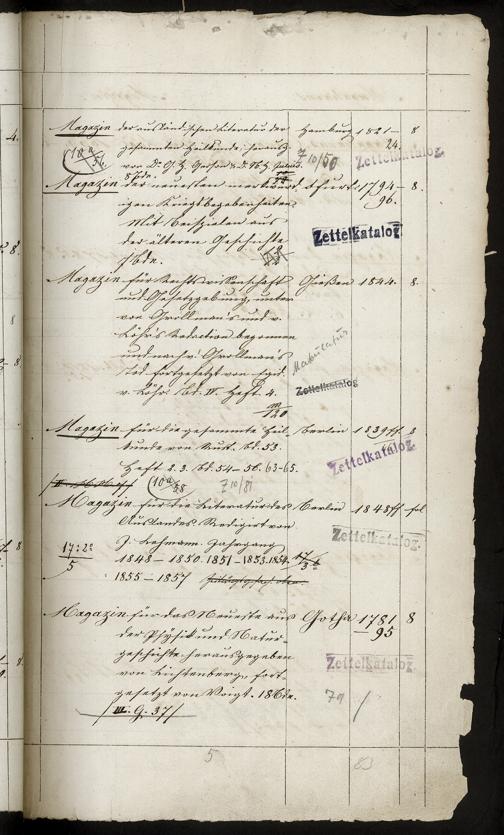 Magazin der ausländischen Literatur der Hamburg 1821- 8
gesammten Heilkunde, herausg. 24.
von Dr. G. H. Gerson & Dr. N. H. Julius.
10a/56 7 10/50 Zettelkatalog.
Magazin der neuesten merkwürd- Erfurt 1794- 8.
igen Kriegsbegebenheiten 96.
Mit Beispielen aus
der älteren Geschichte
Zettelkatalog
Magazin für Rechtswissenschaft Gießen 1844. 8.
und Gesetzgebung, unter
von Grollman's und v.
Löhr's Redaction begonnen
und nach v. Grollman's
Tod fortgesetzt von Egid.
v. Löhr. Bd. IV. Heft 4.
Makulatur
Zettelkatalog
Magazin für die gesammte Heil- Berlin 1839ff. 8
kunde von Rust. Bd. 53.
Heft 2.3. Bd. 54-56. 63-65.
Zettelkatalog.
10a/58 7 10/81
Magazin für die Literatur des Berlin 1848ff fol
Auslandes Redigirt von
J. Lehmann. Jahrgang
1848-1850. 1851-1853. 1854.
1855-1857
Zettelkatalog.
Magazin für das Neueste aus Gotha 1781 8
der Physik und Natur- -95
geschichte herausgegeben
von Lichtenberg, fort-
gesetzt von Voigt. 18 Bde.
Zettelkatalog.
III. G. 37
5 83